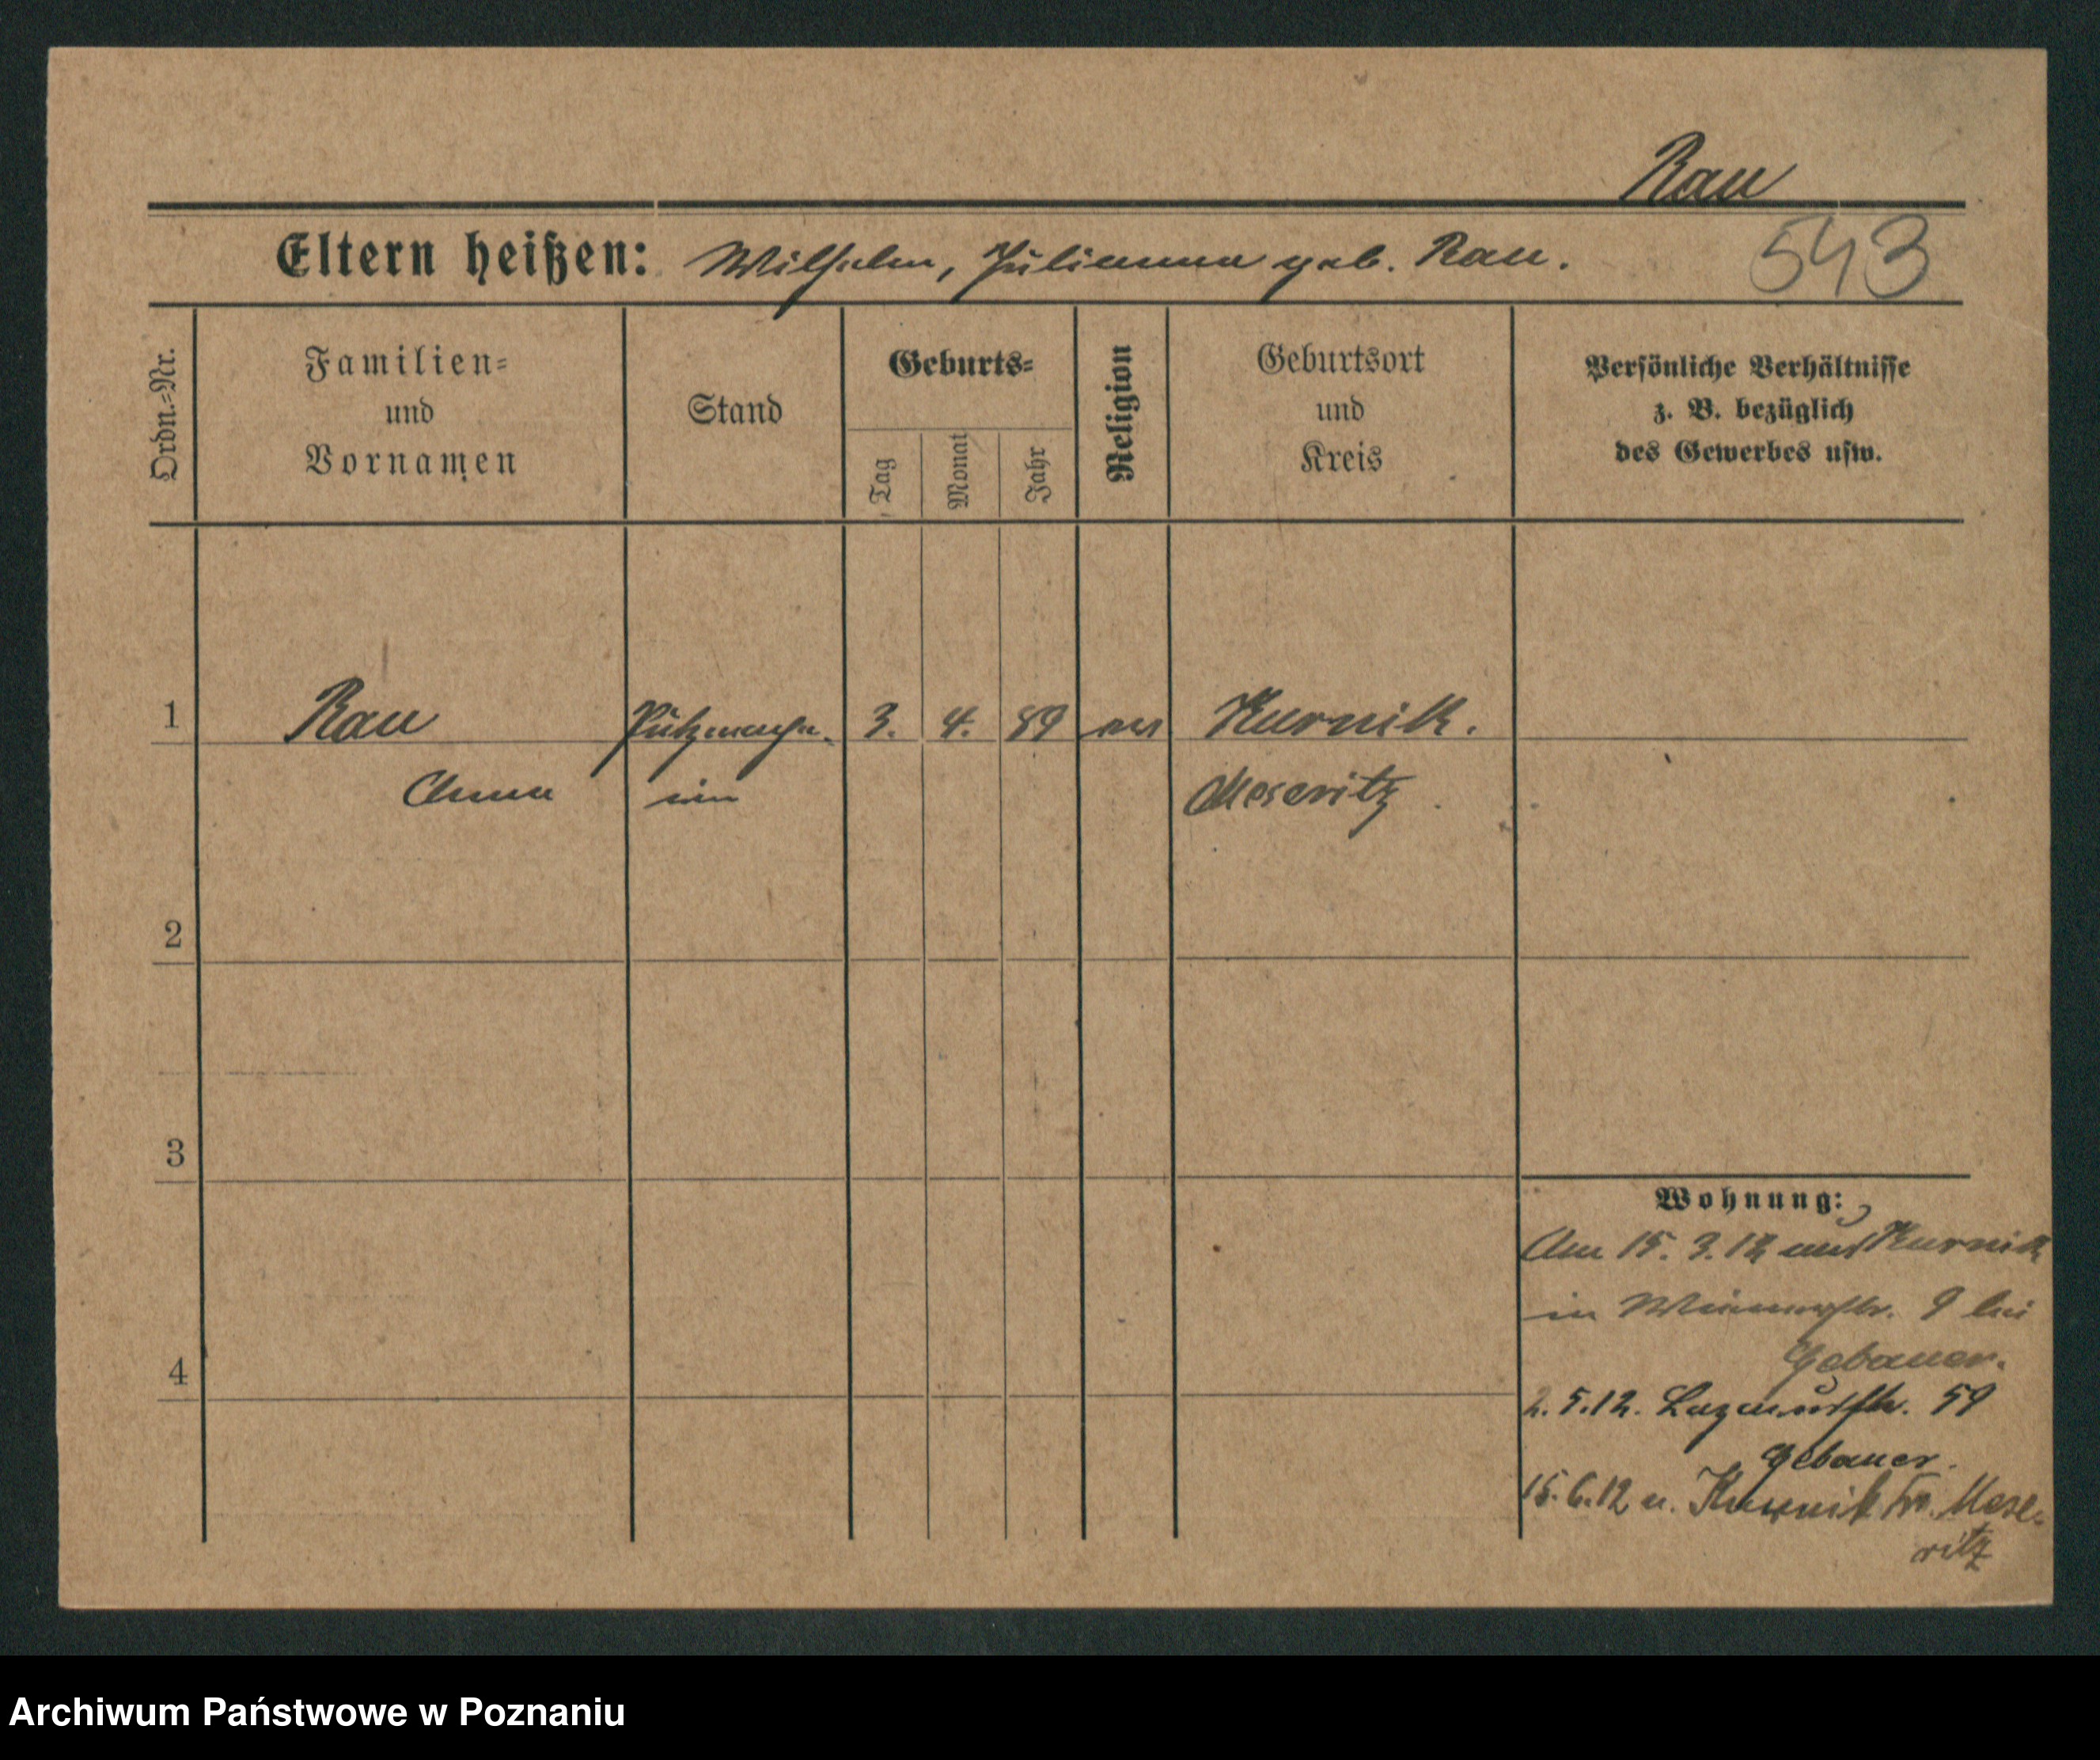 Rau
Eltern heißen: Wilhelm, Julianna geb. Rau.
543
Ordn.=Nr.
Familien=
und
Vornamen
Stand
Geburts=
Tag
Monat
Jahr
Religion
Geburtsort
und
Kreis
Persönliche Verhältnisse
z. B. bezüglich
des Gewerbes usw.
1 Rau Putzmache. 3. 4. 89 ev Kurnik.
Anna rin Meseritz
2
3
4
Wohnung:
Am 15. 3. 12 aus Kurnik
in 9 bei
Gebauer.
2. 5. 12. str. 59
Gebauer.
15. 6. 12 n. Kurnik Kr. Mese-
ritz
Archiwum Państwowe w Poznaniu